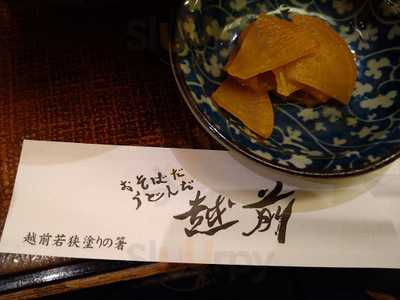 おそばだ
うどんだ
越前
越前若狭塗りの箸